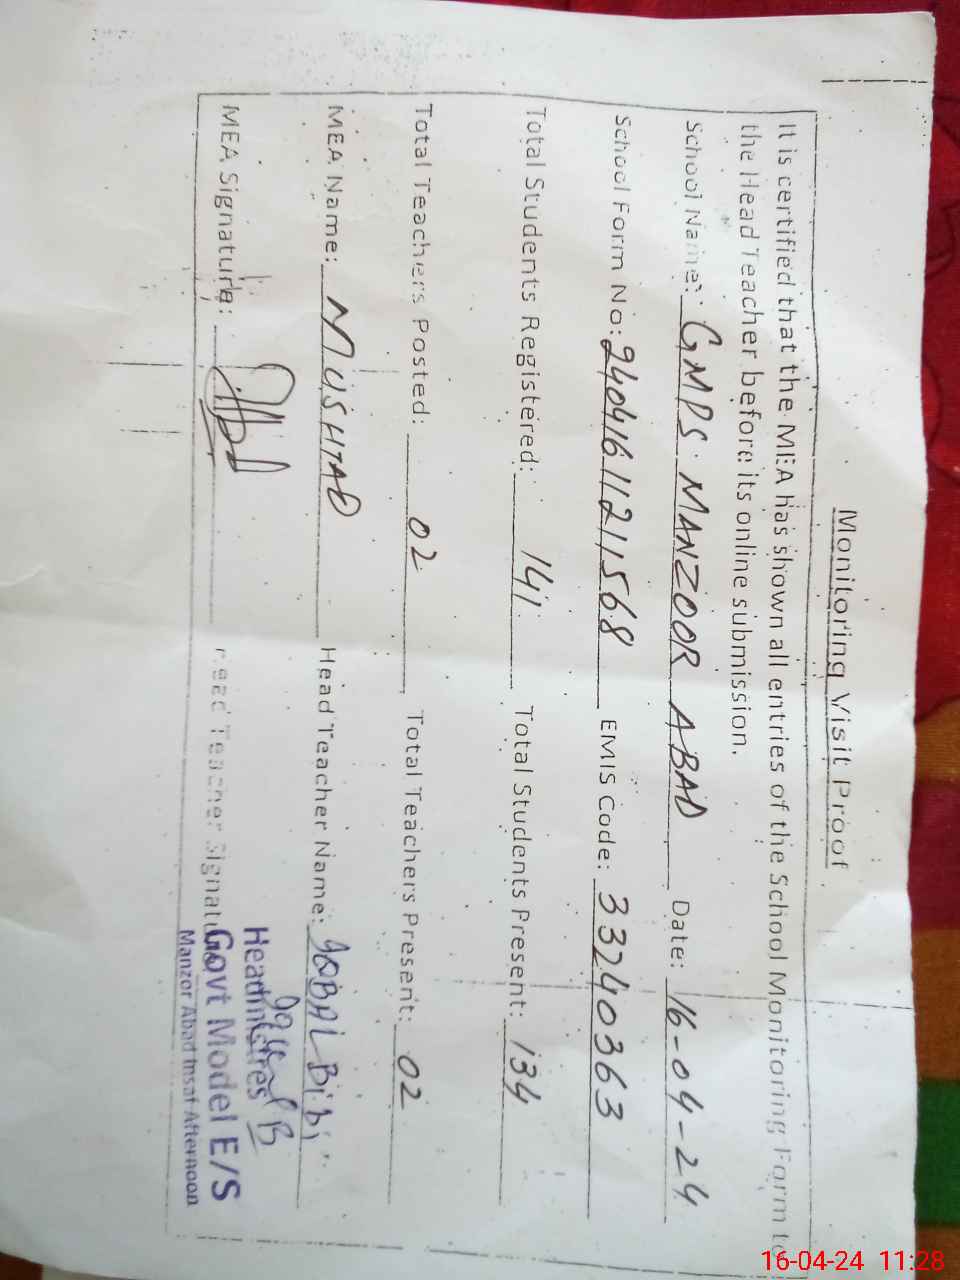 Monitoring Visit Proof
It is certified that the MEA has shown all entries of the School Monitoring Form to
the Head Teacher before its online submission.
School Name: GMPS. MANZOOR ABAD Date: 16-04-24
School Form No: 24041611211568 EMIS Code: 33240363
Total Students Registered: 141 Total Students Present: 134
Total Teachers Posted: 02 Total Teachers Present: 02
MEA Name: MUSHTAQ Head Teacher Name: IQBAL Bibi
MEA Signature: Head Teacher Signature
Headmistres
Govt Model E/S
Manzor Abad Insaf Afternoon
16-04-24 11:28